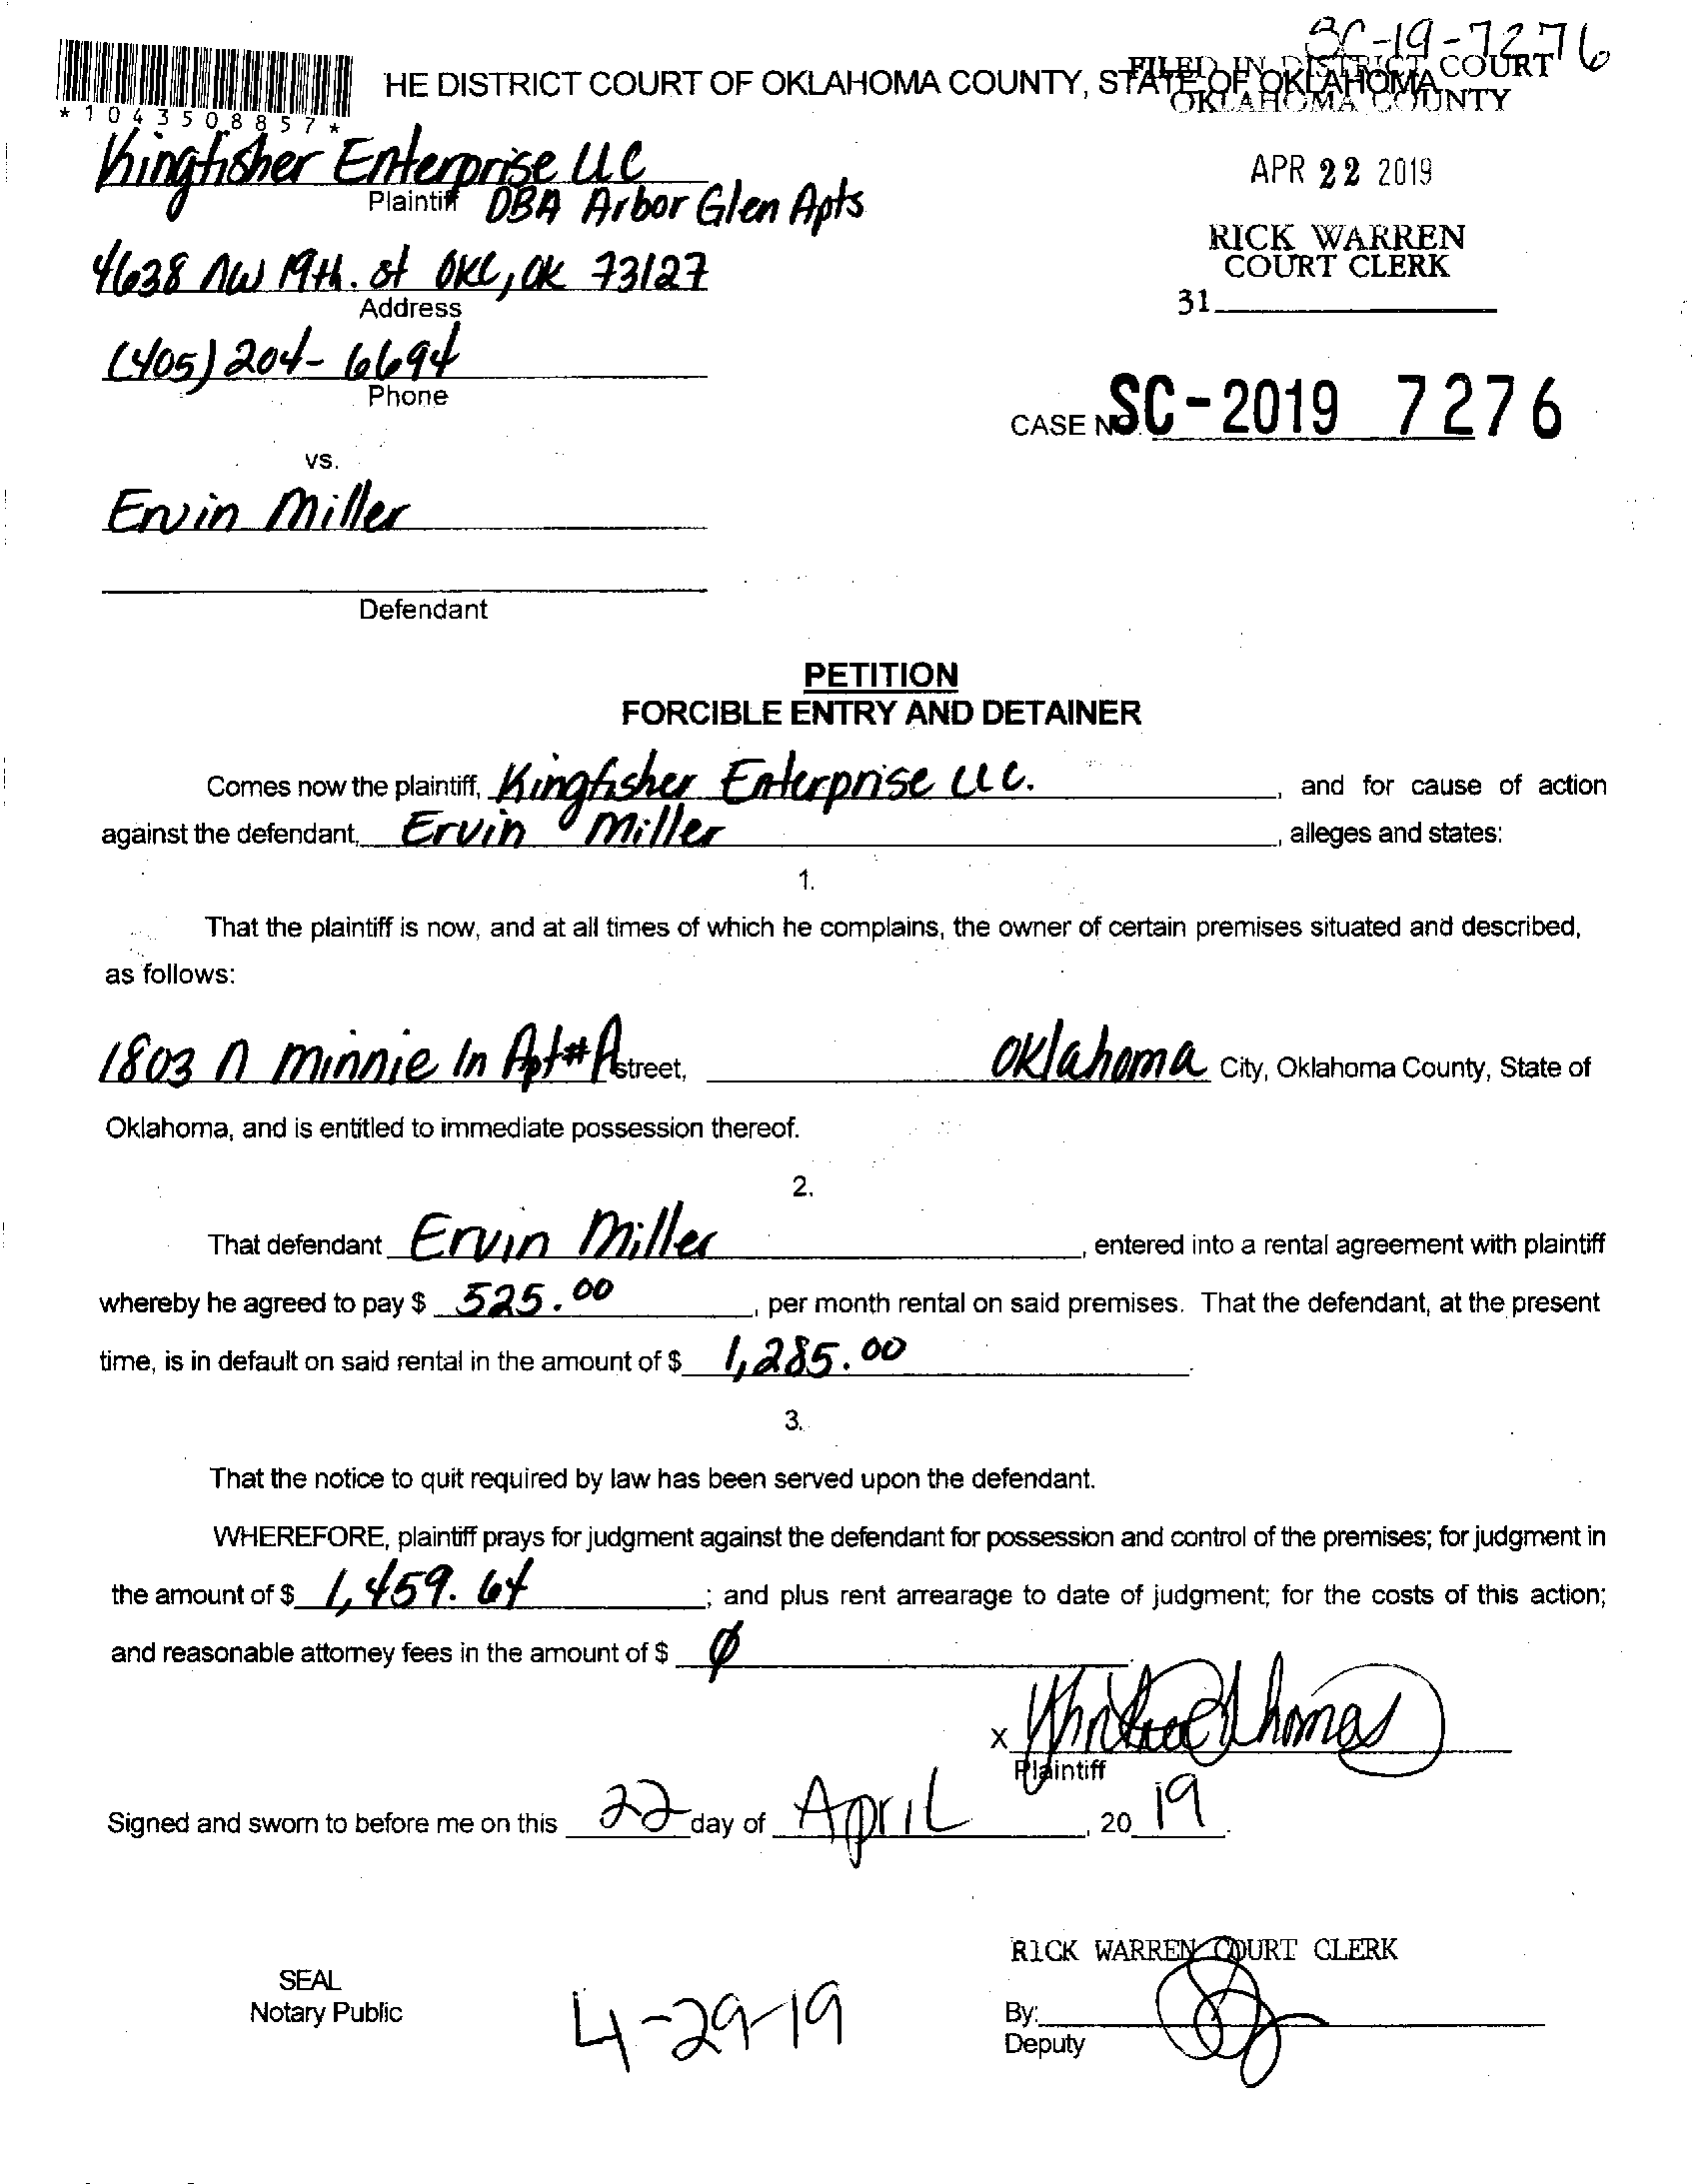 SC-19-7276
HE DISTRICT COURT OF OKLAHOMA COUNTY, STATE OF OKLAHOMA
FILED IN DISTRICT COURT
OKLAHOMA COUNTY
*1043508857*
Kingfisher Enterprise LLC
Plaintiff DBA Arbor Glen Apts
APR 22 2019
RICK WARREN
COURT CLERK
4638 NW 19th. st OKC, OK 73127
Address
31
(405) 204-6694
Phone
CASE NO. SC-2019 7276
vs.
Ervin Miller
Defendant
PETITION
FORCIBLE ENTRY AND DETAINER
Comes now the plaintiff, Kingfisher Enterprise LLC. , and for cause of action
against the defendant, Ervin Miller , alleges and states:
1.
That the plaintiff is now, and at all times of which he complains, the owner of certain premises situated and described,
as follows:
1803 N Minnie ln Apt#A street, Oklahoma City, Oklahoma County, State of
Oklahoma, and is entitled to immediate possession thereof.
2.
That defendant Ervin Miller , entered into a rental agreement with plaintiff
whereby he agreed to pay $ 525.00 , per month rental on said premises. That the defendant, at the present
time, is in default on said rental in the amount of $ 1,285.00 .
3.
That the notice to quit required by law has been served upon the defendant.
WHEREFORE, plaintiff prays for judgment against the defendant for possession and control of the premises; for judgment in
the amount of $ 1,459.64 ; and plus rent arrearage to date of judgment; for the costs of this action;
and reasonable attorney fees in the amount of $ Ø .
X
Plaintiff
Signed and sworn to before me on this 22 day of April , 20 19 .
RICK WARREN COURT CLERK
SEAL
Notary Public
4-29-19
By:
Deputy